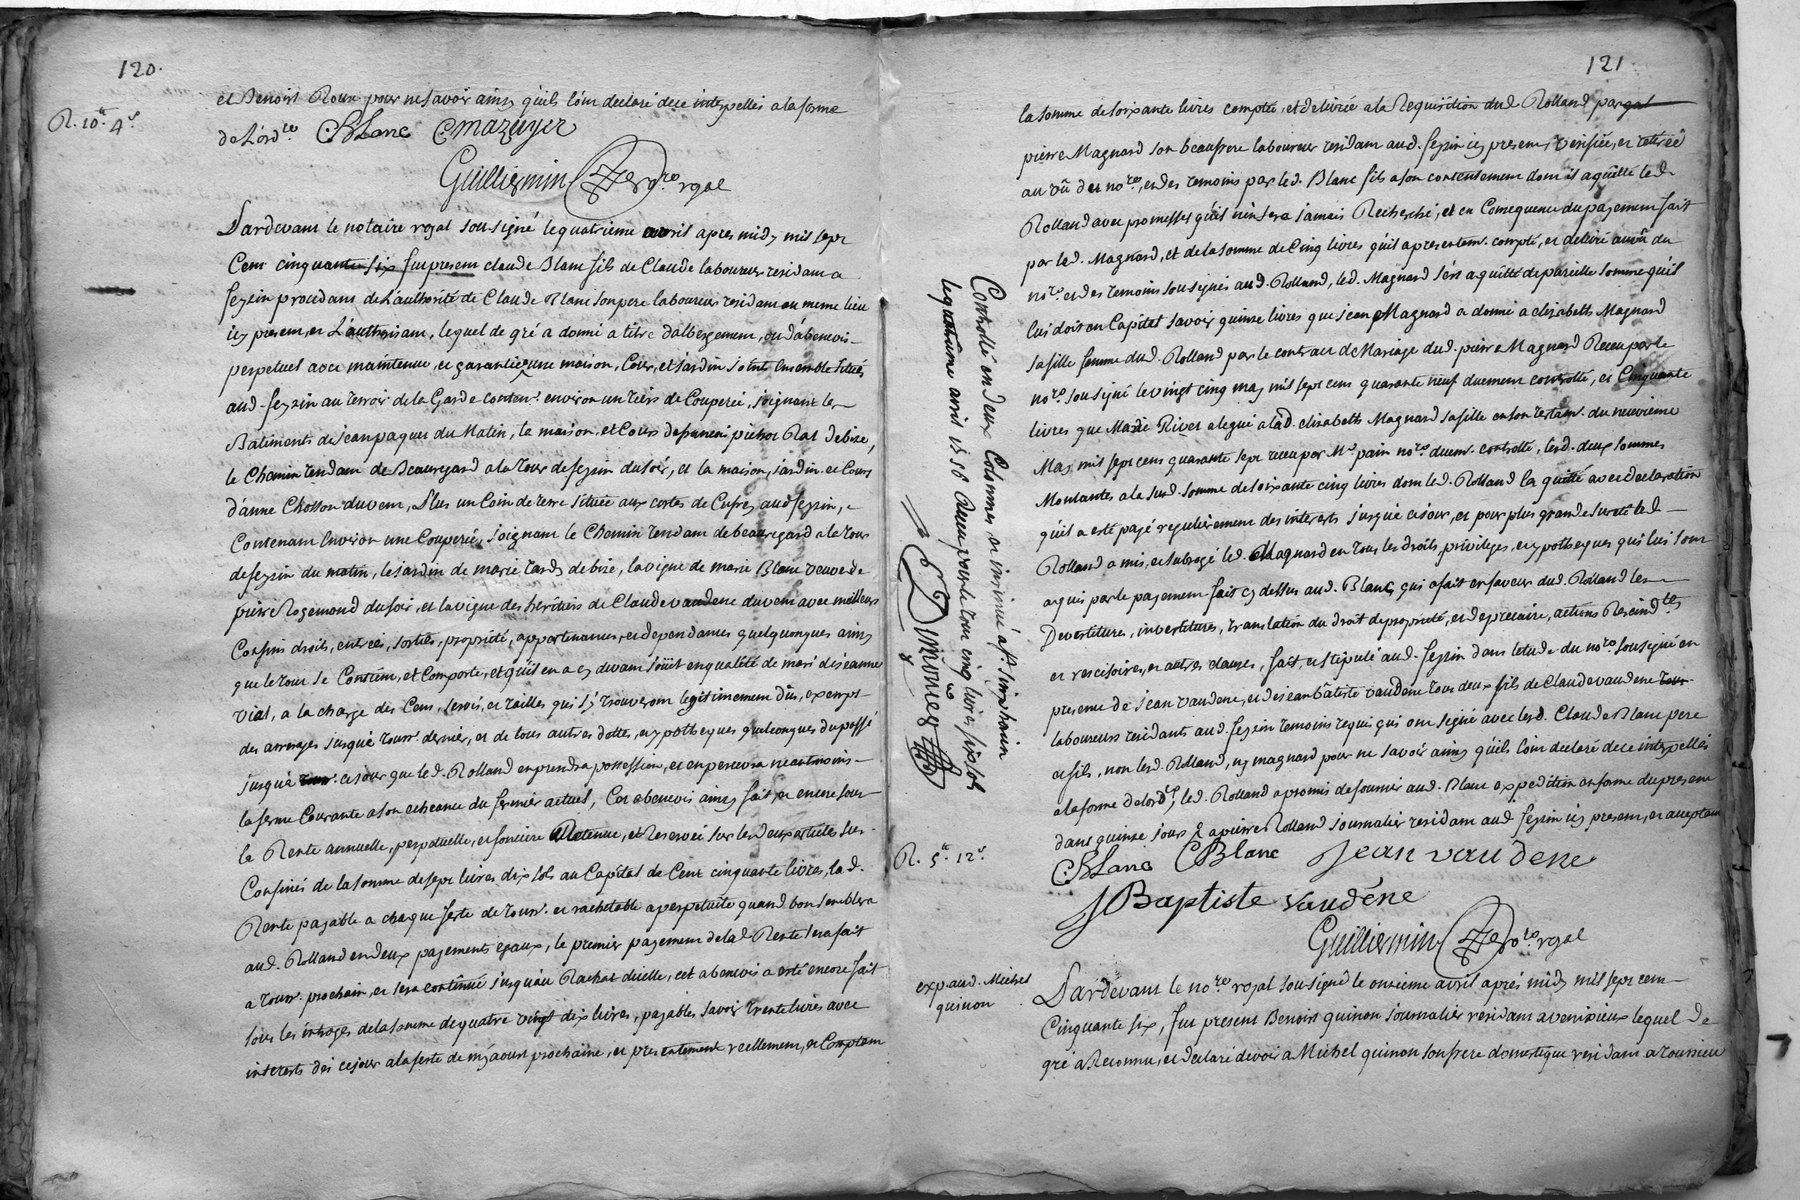 120.
R. 10ᵗ 4ˢ
et Benoist Roux pour ne savoir ainsy quils l'ont declaré de ce interpellés a la forme
de L'ord.ce CBlanc Cmazuyer
Guilliermin no.re royal
Pardevant le notaire royal soussigné le quatrieme avril apres midy mil sept
Cent cinquante six fut present claude Blanc fils de Claude laboureur residant a
feyzin procedant de L'authorité de Claude Blanc son pere laboureur residant au meme lieu
icy present, et L'authorisant, lequel de gré a donné a titre d'albergement, ou d'abenevis
perpetuel avec maintenue, et garantie une maison, Cour, et jardin joints ensemble situés
aud. feyzin au terroir de la Garde conten.t environ un tiers de Couperée, joignant les
Batiments de jean paquet du Matin, la maison, et Cour de pierre Rat de bize,
le Chemin tendant de Beauregard a la tour de feyzin du soir, et la maison, jardin et Cour
d'anne Chosson du vent, Plus un Coin de terre située aux cortes de Cufrey aud. feyzin,
Contenant environ une Couperée, joignant le Chemin tendant de beauregard a la tour
de feyzin du matin, le jardin de marie tardy de bize, la vigne de marie Blanc veuve de
pierre Rogemond du soir, et la vigne des héritiers de Claude vaudene du vent avec meilleurs
Confins droits, entrées, sorties, proprieté, appartenances, et dependances quelquonques ainsy
que le tout se Contient, et Comporte, et qu'il en a cy devant joüit en qualité de mari de jeanne
Vial, a la charge des Cens, servis, et tailles qui s'y trouveront legitimement dûs, exempt
des arrerages jusqu'a tous.ts dernier, et de tous autres dettes, et ypotheques quelconques du passé
jusqu'a ce jour que led. Rolland en prendra possession, et en percevra neantmoins
la ferme Courante a son echeance du fermier actuel, Cet abenevis ainsy fait, et encore sous
la Rente annuelle, perpetuelle, et fonciere Retenue, et Reservée sur lesd. deux articles sus
Confinés de la somme de sept livres dix sols au Capital de Cent cinquante livres, lad.
Rente payable a chaque feste de tous.ts et rachetable a perpetuité quand bon semblera
aud. Rolland en deux payements egaux, le premier payement de lad. Rente sera fait
a tous.ts prochain, et sera continué jusqu'au Rachat d'icelle, cet abenevis a esté encore fait
sous les introges de la somme de quatre vingt dix livres, payables savoir trente livres avec
interests dés ce jour a la feste de my aoust prochaine, et presentement reellement, et Comptant
121
la somme de soixante livres comptée, et delivrée a la Requisition dud. Rolland par
pierre Magnard son beaufrere laboureur residant aud. feyzin icy present, verifiée, et retirée
au vû du no.re, et des temoins par led. Blanc fils a son contentement dont il a quitté led.
Rolland avec promesses qu'il n'en sera jamais Recherché, et en Consequence du payement fait
par led. Magnard, et de la somme de Cinq livres qu'il a presentem.t compté, et delivré au vû du
no.re et des temoins soussignés aud. Rolland, led. Magnard s'est aquitté de pareille somme qu'il
lui doit en Capital savoir quinze livres que jean Magnard a donné a elizabeth Magnard
sa fille femme dud. Rolland par le contract de Mariage dud. pierre Magnard Receu par le
no.re soussigné le vingt cinq may mil sept cent quarante neuf duement controllé, et Cinquante
livres que Marie River a legué a lad. elizabeth Magnard sa fille en son testam.t du neuvieme
May mil sept cent quarante sept receu par M.e pain no.re duem.t controllé, lesd. deux sommes
Montantes a la susd. somme de soixante cinq livres dont led. Rolland l'a quitté avec declaration
qu'il a esté payé regulierement des interests jusqu'a ce jour, et pour plus grande sureté led.
Rolland a mis, et subrogé led. Magnard en tous les droits, privileges, et ypotheques qui lui sont
acquis par le payement fait cy dessus aud. Blanc, qui a fait en faveur dud. Rolland les
Devestitures, investitures, translation du droit de proprieté, et de precaire, actions Rescind.tes
et rescisoires, et autres clauses, fait, et stipulé aud. feyzin dans l'etude du no.re soussigné en
presence de jean vaudene, et de jean baptiste vaudene tous deux fils de Claude vaudene
laboureurs residants aud. feyzin temoins requis qui ont signé avec lesd. Claude Blanc pere
et fils, non lesd. Rolland, ny magnard pour ne savoir ainsy qu'ils l'ont declaré de ce interpellés
a la forme de l'ord.ce, led. Rolland a promis de fournir aud. Blanc expedition en forme du present
dans quinze jours & a pierre Rolland journalier residant aud. feyzin icy present, et acceptant
R. 5ᵗ 12ˢ
CBlanc CBlanc Jean vaudene
J Baptiste vaudéne
Guilliermin no.re royal
Controllé en deux Colomnes et insinué a s.t simphorien
le quatorze avril 1756 Receu pour le tout cinq livres six sols
exp. aud. Michel
quinon
Pardevant le no.re royal soussigné le onzieme avril aprés midy mil sept cent
Cinquante six, fut present Benoist quinon journalier residant a venixieux lequel de
gré a Reconnu, et declaré devoir a Michel quinon son frere domestique residant a toussieu